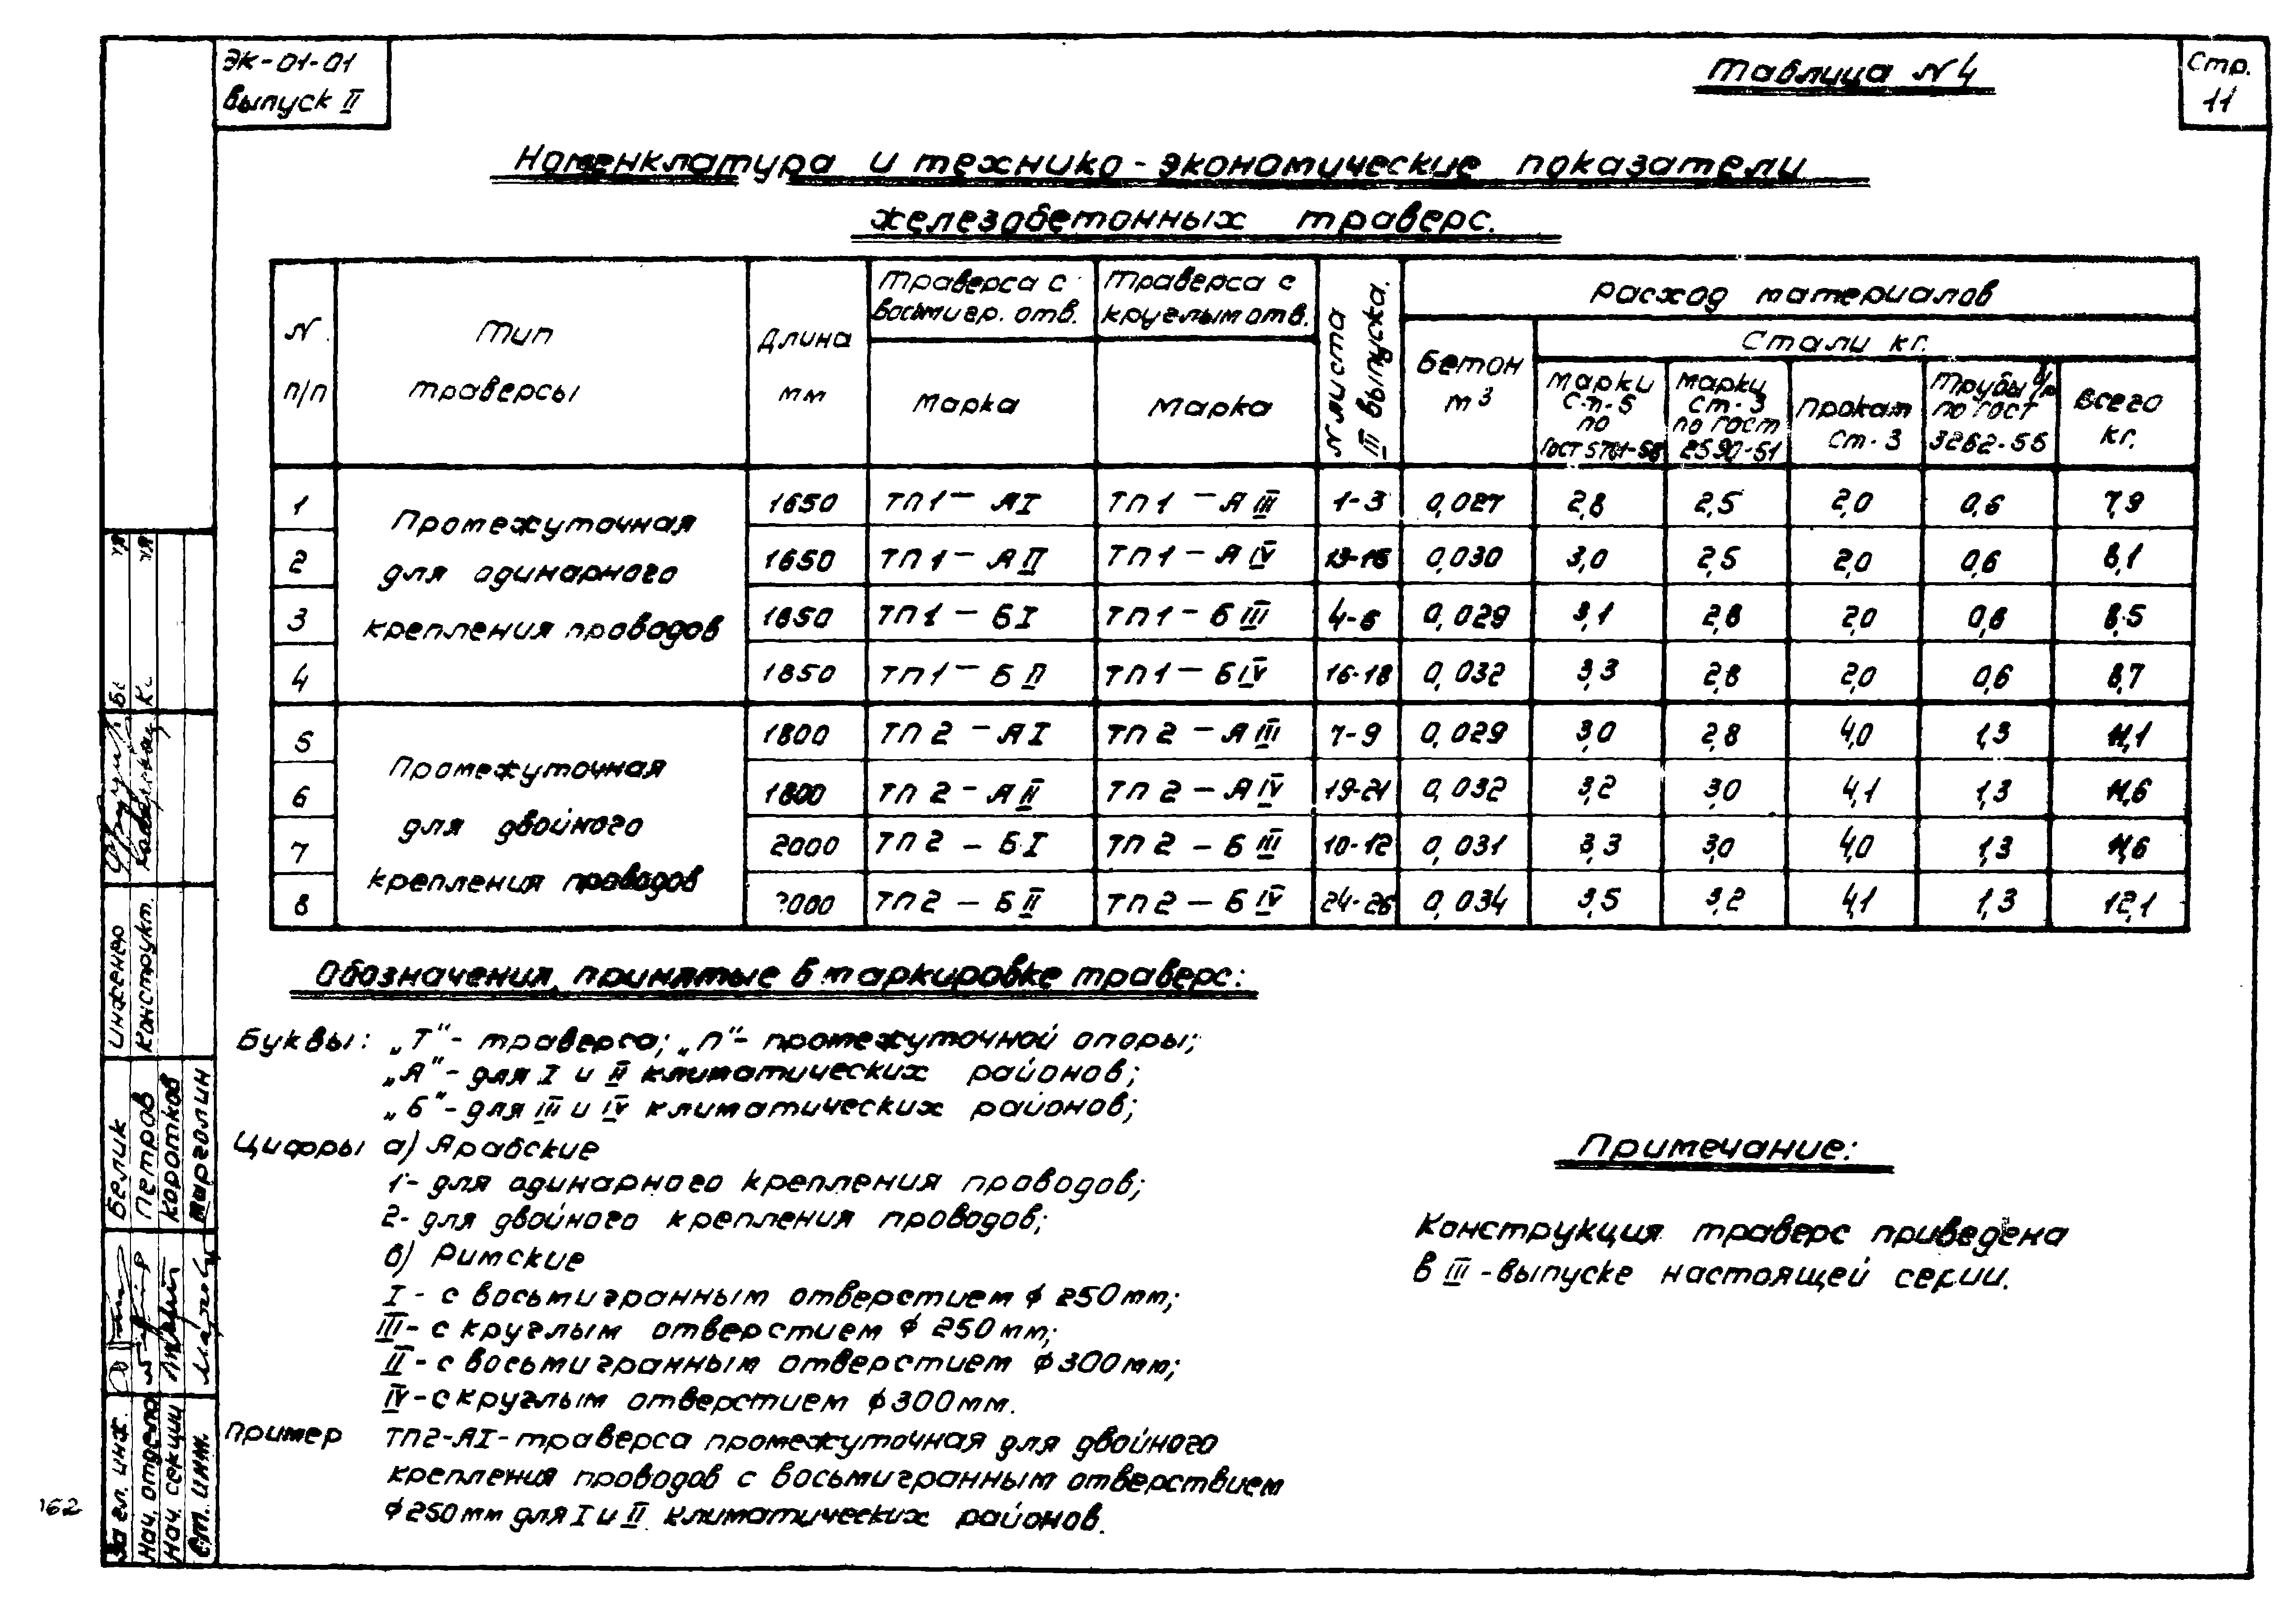 ЭК-01-01
Выпуск II
Таблица N4
Стр.
11
Номенклатура и технико-экономические показатели
железобетонных траверс.
N п/п
Тип траверсы
Длина мм
Траверса с восьмигр. отв.
Марка
Траверса с круглым отв.
Марка
N листа III выпуска.
Расход материалов
Бетон м3
Стали кг.
Марки Ст-5 по ГОСТ 5781-58
Марки Ст-3 по ГОСТ 2590-51
Прокат Ст-3
Трубы по ГОСТ 3262-55
Всего кг.
Промежуточная для одинарного крепления проводов
1 1650 ТП1-АI ТП1-АIII 1-3 0,027 2,8 2,5 2,0 0,6 7,9
2 1650 ТП1-АII ТП1-АIV 13-15 0,030 3,0 2,5 2,0 0,6 8,1
3 1850 ТП1-БI ТП1-БIII 4-6 0,029 3,1 2,8 2,0 0,6 8,5
4 1850 ТП1-БII ТП1-БIV 16-18 0,032 3,3 2,8 2,0 0,6 8,7
Промежуточная для двойного крепления проводов
5 1800 ТП2-АI ТП2-АIII 7-9 0,029 3,0 2,8 4,0 1,3 11,1
6 1800 ТП2-АII ТП2-АIV 19-21 0,032 3,2 3,0 4,1 1,3 11,6
7 2000 ТП2-БI ТП2-БIII 10-12 0,031 3,3 3,0 4,0 1,3 11,6
8 2000 ТП2-БII ТП2-БIV 24-26 0,034 3,5 3,2 4,1 1,3 12,1
Обозначения, принятые в маркировке траверс:
Буквы: „Т"- траверса; „П"- промежуточной опоры;
„А"- для I и II климатических районов;
„Б"- для III и IV климатических районов;
Цифры а) Арабские
1- для одинарного крепления проводов;
2- для двойного крепления проводов;
в) Римские
I - с восьмигранным отверстием ф 250 мм;
III - с круглым отверстием ф 250 мм;
II - с восьмигранным отверстием ф 300 мм;
IV - с круглым отверстием ф 300 мм.
Пример ТП2-АI-траверса промежуточная для двойного
крепления проводов с восьмигранным отверствием
ф 250 мм для I и II климатических районов.
Примечание:
Конструкция траверс приведена
в III-выпуске настоящей серии.
инженер
Конструкт.
Белик
Петров
Коротков
Марголин
За гл. инж.
Нач. отдела
Нач. секции
Ст. инж.
162